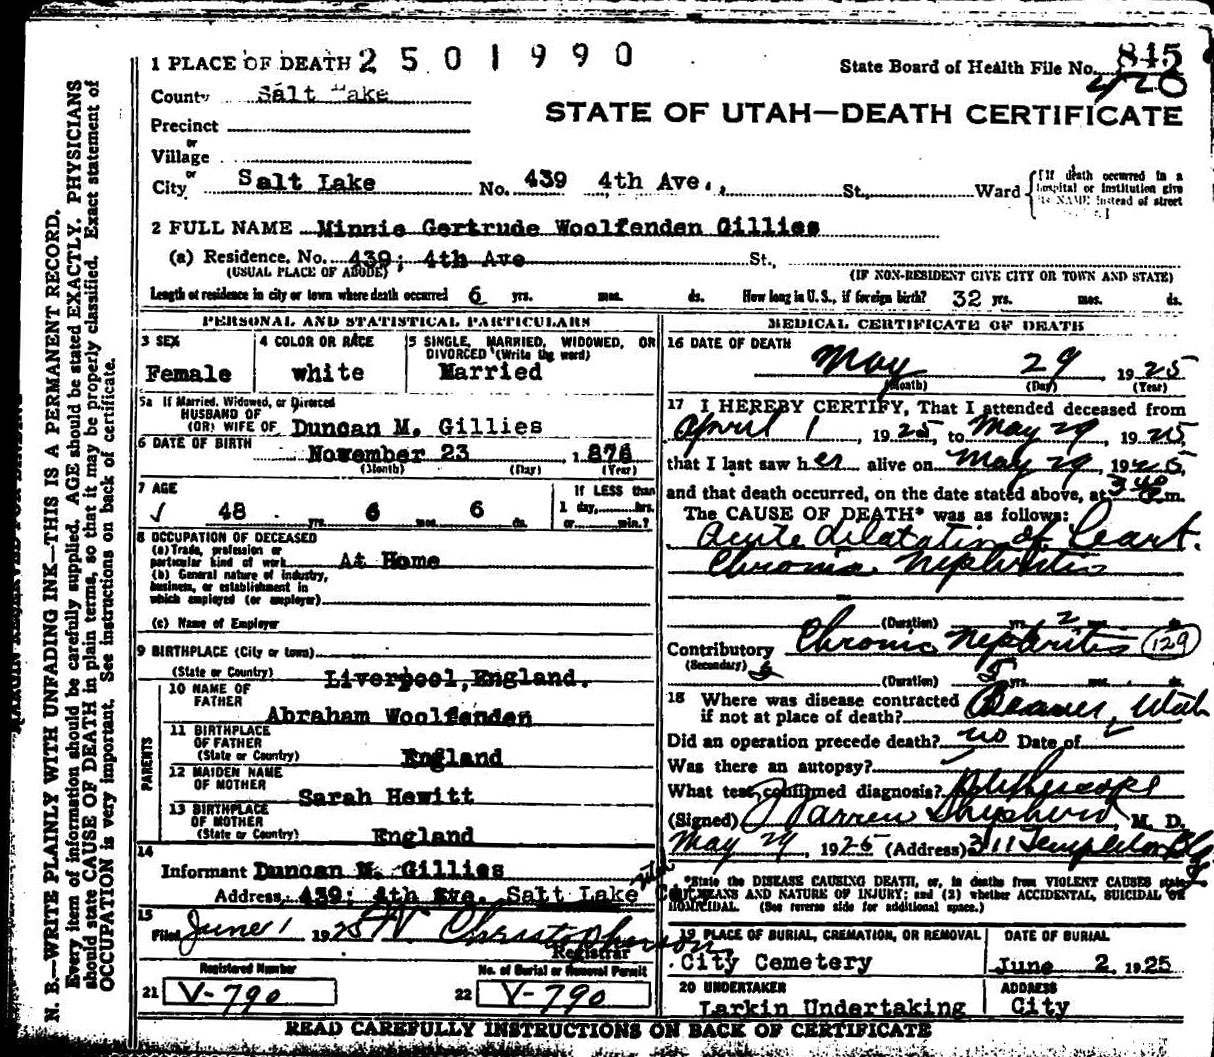 1 PLACE OF DEATH 2501990
State Board of Health File No. 845
420
County Salt Lake
STATE OF UTAH—DEATH CERTIFICATE
Precinct
or
Village
or
City Salt Lake No. 439 4th Ave., St., Ward
{[If death occurred in a hospital or institution give its NAME instead of street
2 FULL NAME Minnie Gertrude Woolfenden Gillies
(a) Residence, No. 439; 4th Ave St.,
(USUAL PLACE OF ABODE) (IF NON-RESIDENT GIVE CITY OR TOWN AND STATE)
Length of residence in city or town where death occurred 6 yrs. mos. ds. How long in U. S., if foreign birth? 32 yrs. mos. ds.
PERSONAL AND STATISTICAL PARTICULARS
3 SEX
Female
4 COLOR OR RACE
white
5 SINGLE, MARRIED, WIDOWED, OR
DIVORCED (Write the word)
Married
5a If Married, Widowed, or Divorced
HUSBAND OF
(OR) WIFE OF Duncan M. Gillies
6 DATE OF BIRTH
November 23 1876
(Month) (Day) (Year)
7 AGE
48 yrs. 6 mos. 6 ds.
If LESS than
1 day, hrs.
or min.?
8 OCCUPATION OF DECEASED
(a) Trade, profession or
particular kind of work At Home
(b) General nature of industry,
business, or establishment in
which employed (or employer)
(c) Name of Employer
9 BIRTHPLACE (City or town)
(State or Country) Liverpool, England.
PARENTS
10 NAME OF
FATHER
Abraham Woolfenden
11 BIRTHPLACE
OF FATHER
(State or Country) England
12 MAIDEN NAME
OF MOTHER
Sarah Hewitt
13 BIRTHPLACE
OF MOTHER
(State or Country) England
14
Informant Duncan M. Gillies
Address 439; 4th Eve. Salt Lake
15
Filed June 1 1925 Christopherson
Registrar
Registered Number
21 V-790
No. of Burial or Removal Permit
22 V-790
MEDICAL CERTIFICATE OF DEATH
16 DATE OF DEATH
May 29, 1925
(Month) (Day) (Year)
17 I HEREBY CERTIFY, That I attended deceased from
April 1, 1925, to May 29, 1925,
that I last saw her alive on May 29, 1925,
and that death occurred, on the date stated above, at 3 40 m.
The CAUSE OF DEATH* was as follows:
Acute dilatation of heart.
Chronic Nephritis
(Duration) 2 yrs. mos. ds.
Contributory Chronic Nephritis (129)
(Secondary)
(Duration) 5 yrs. mos. ds.
18 Where was disease contracted
if not at place of death? Beaver, Utah
Did an operation precede death? no Date of
Was there an autopsy?
What test confirmed diagnosis?
(Signed) Warren Shepherd M. D.
May 29, 1925 (Address) 311 Templeton Bldg
*State the DISEASE CAUSING DEATH, or, in deaths from VIOLENT CAUSES state
MEANS AND NATURE OF INJURY; and (2) whether ACCIDENTAL, SUICIDAL OR
HOMICIDAL. (See reverse side for additional space.)
19 PLACE OF BURIAL, CREMATION, OR REMOVAL
City Cemetery
DATE OF BURIAL
June 2, 1925
20 UNDERTAKER
Larkin Undertaking
ADDRESS
City
READ CAREFULLY INSTRUCTIONS ON BACK OF CERTIFICATE
N. B.—WRITE PLAINLY WITH UNFADING INK—THIS IS A PERMANENT RECORD.
Every item of information should be carefully supplied. AGE should be stated EXACTLY. PHYSICIANS
should state CAUSE OF DEATH in plain terms, so that it may be properly classified. Exact statement of
OCCUPATION is very important. See instructions on back of certificate.